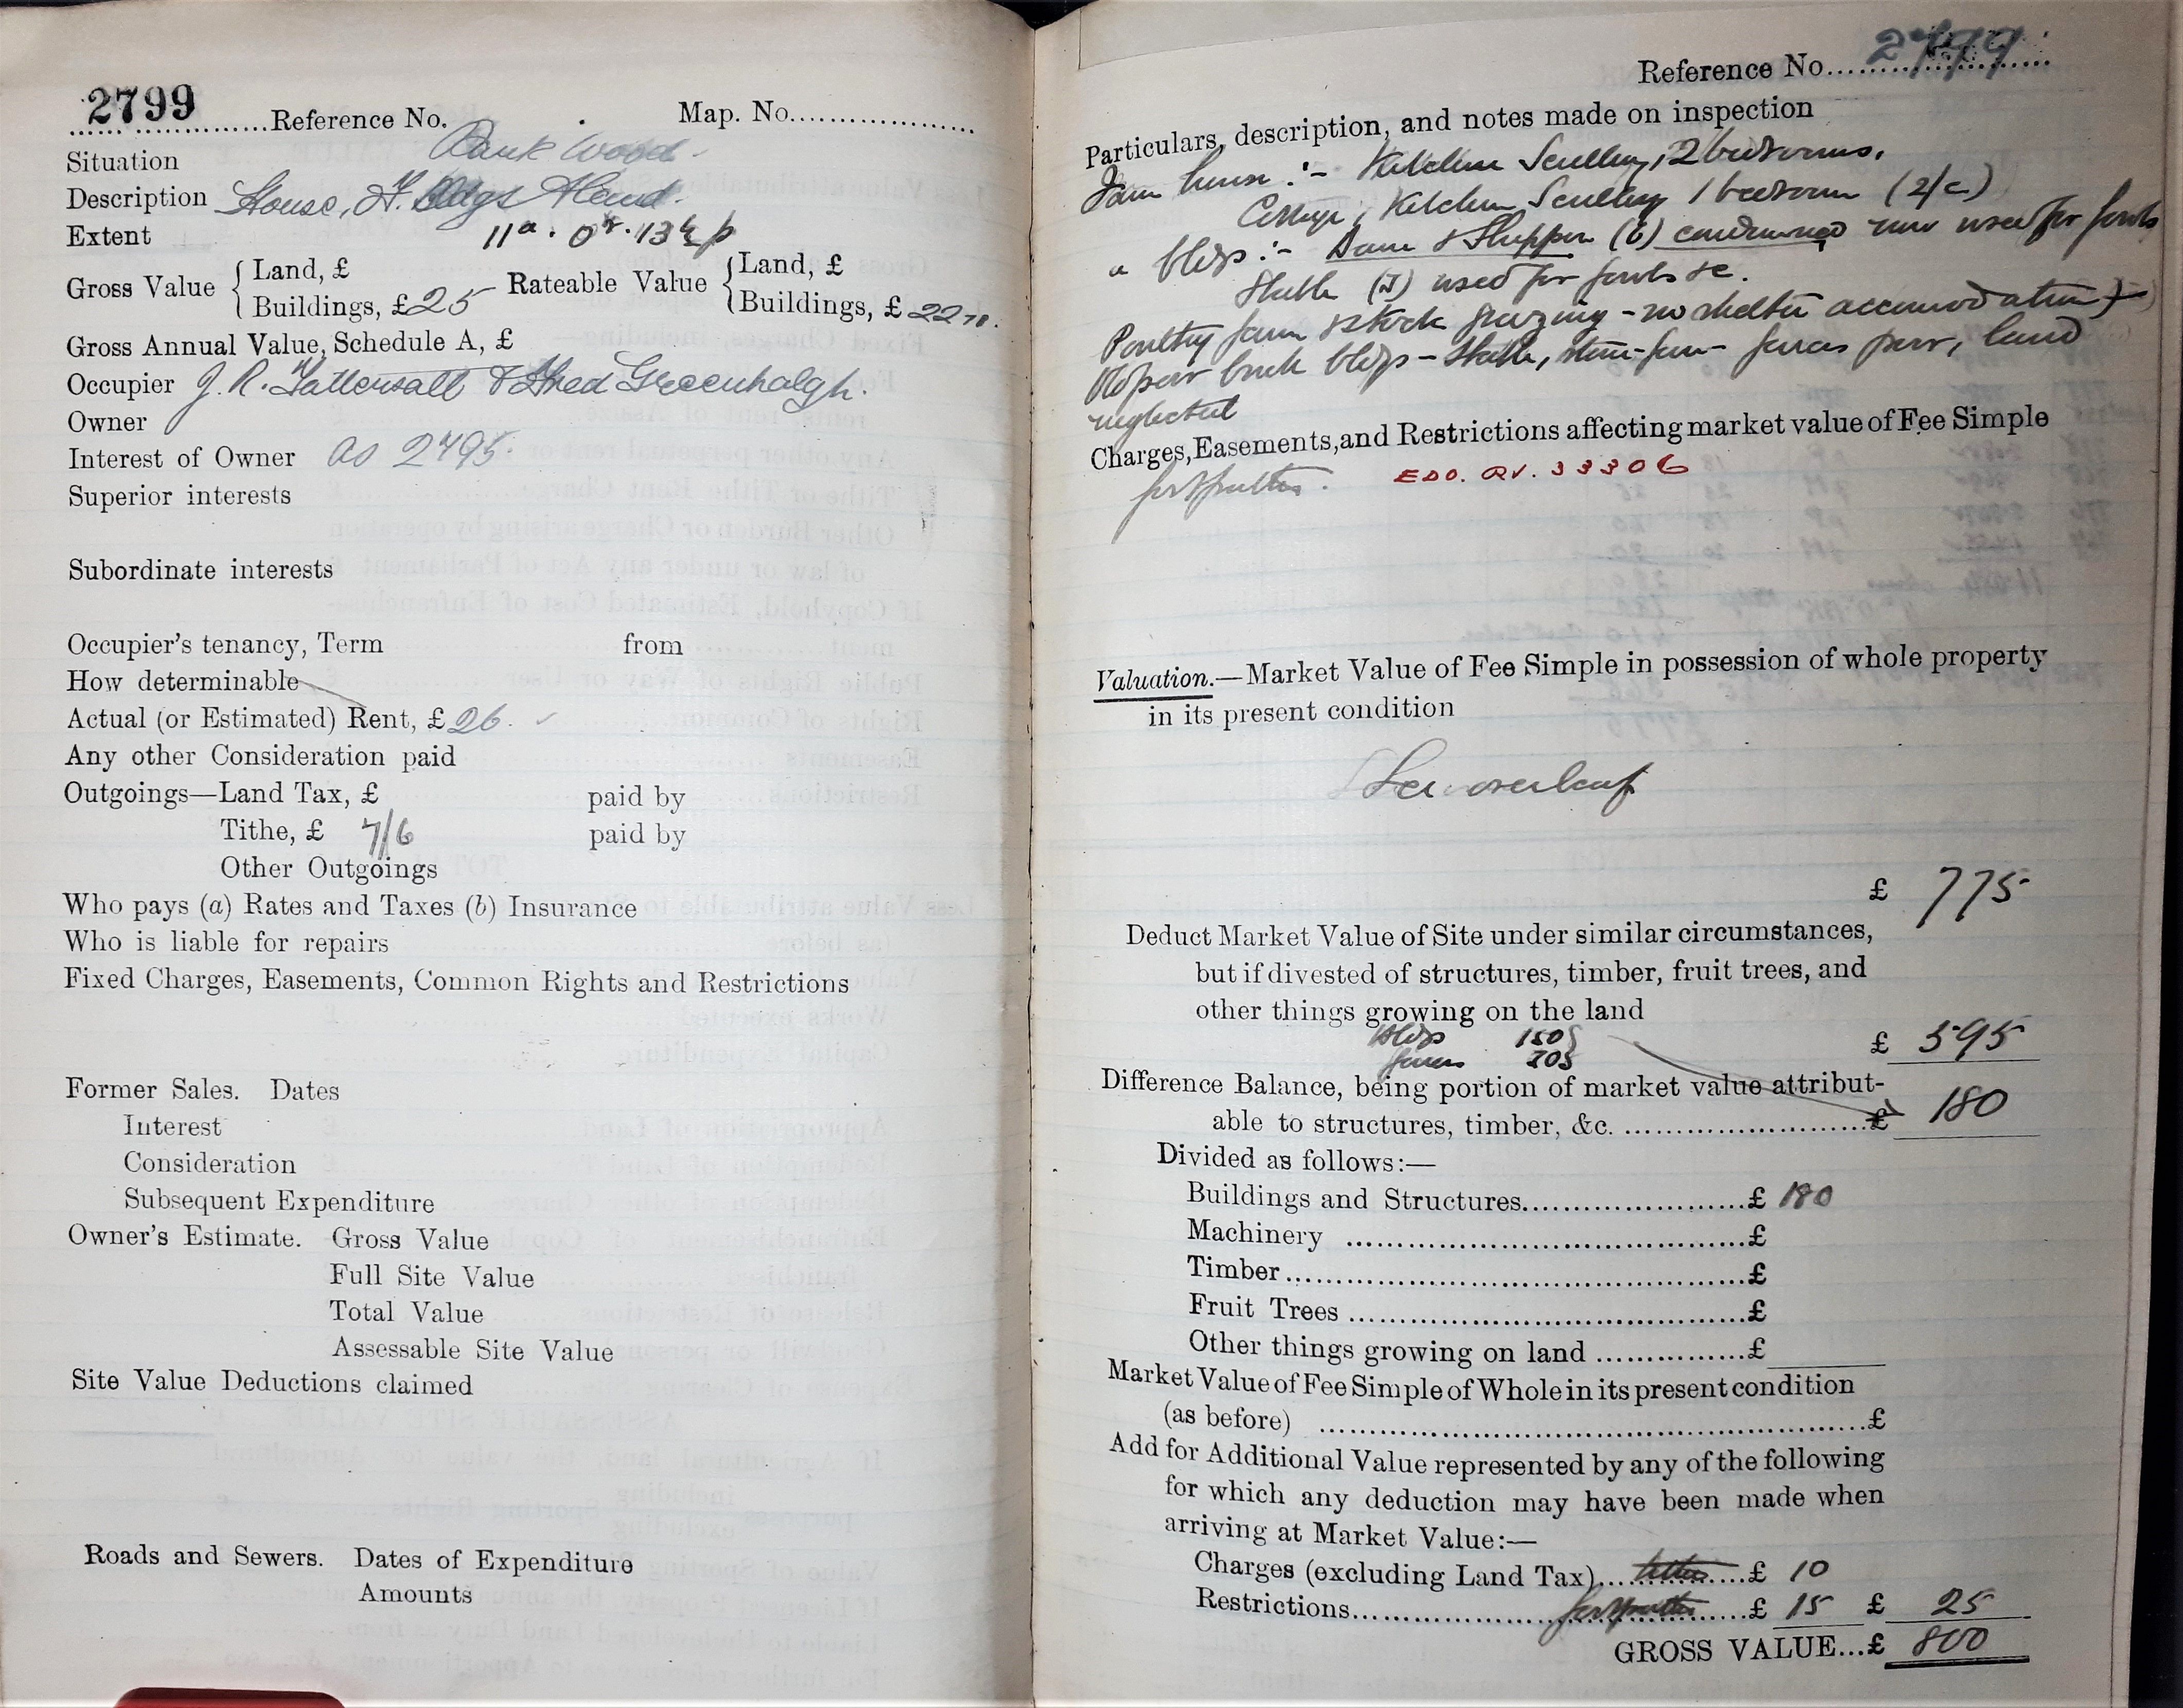 2799 Reference No. Map. No.
Situation Bank Wood
Description House, F. Bldgs & Land.
Extent 11a. 0r. 13½p
Gross Value { Land, £ Rateable Value { Land, £
Buildings, £ 25 Buildings, £ 22
Gross Annual Value, Schedule A, £
Occupier J. R. Tattersall & Fred Greenhalgh.
Owner
Interest of Owner as 2795.
Superior interests
Subordinate interests
Occupier's tenancy, Term from
How determinable
Actual (or Estimated) Rent, £ 26.
Any other Consideration paid
Outgoings—Land Tax, £ paid by
Tithe, £ 7/6 paid by
Other Outgoings
Who pays (a) Rates and Taxes (b) Insurance
Who is liable for repairs
Fixed Charges, Easements, Common Rights and Restrictions
Former Sales. Dates
Interest
Consideration
Subsequent Expenditure
Owner's Estimate. Gross Value
Full Site Value
Total Value
Assessable Site Value
Site Value Deductions claimed
Roads and Sewers. Dates of Expenditure
Amounts
Reference No. 2799
Particulars, description, and notes made on inspection
Farm house :- Kitchen Scullery, 2 bedrooms.
Cottage, Kitchen Scullery 1 bedroom (2/c)
" bldgs :- Barn & Shippon (6) condemned now used for fowls
Stable (2) used for fowls &c.
Poultry farm & stock grazing - no shelter accomodation
Old poor brick bldgs - Stable, stone - fences poor, land
neglected
Charges, Easements, and Restrictions affecting market value of Fee Simple
footpaths. EDO. RV. 33306
Valuation.—Market Value of Fee Simple in possession of whole property
in its present condition
See overleaf
£ 775
Deduct Market Value of Site under similar circumstances,
but if divested of structures, timber, fruit trees, and
other things growing on the land
bldgs 150
fences 30
£ 595
Difference Balance, being portion of market value attribut-
able to structures, timber, &c. £ 180
Divided as follows:—
Buildings and Structures £ 180
Machinery £
Timber £
Fruit Trees £
Other things growing on land £
Market Value of Fee Simple of Whole in its present condition
(as before) £
Add for Additional Value represented by any of the following
for which any deduction may have been made when
arriving at Market Value:—
Charges (excluding Land Tax) tithe £ 10
Restrictions footpaths £ 15 £ 25
GROSS VALUE...£ 800